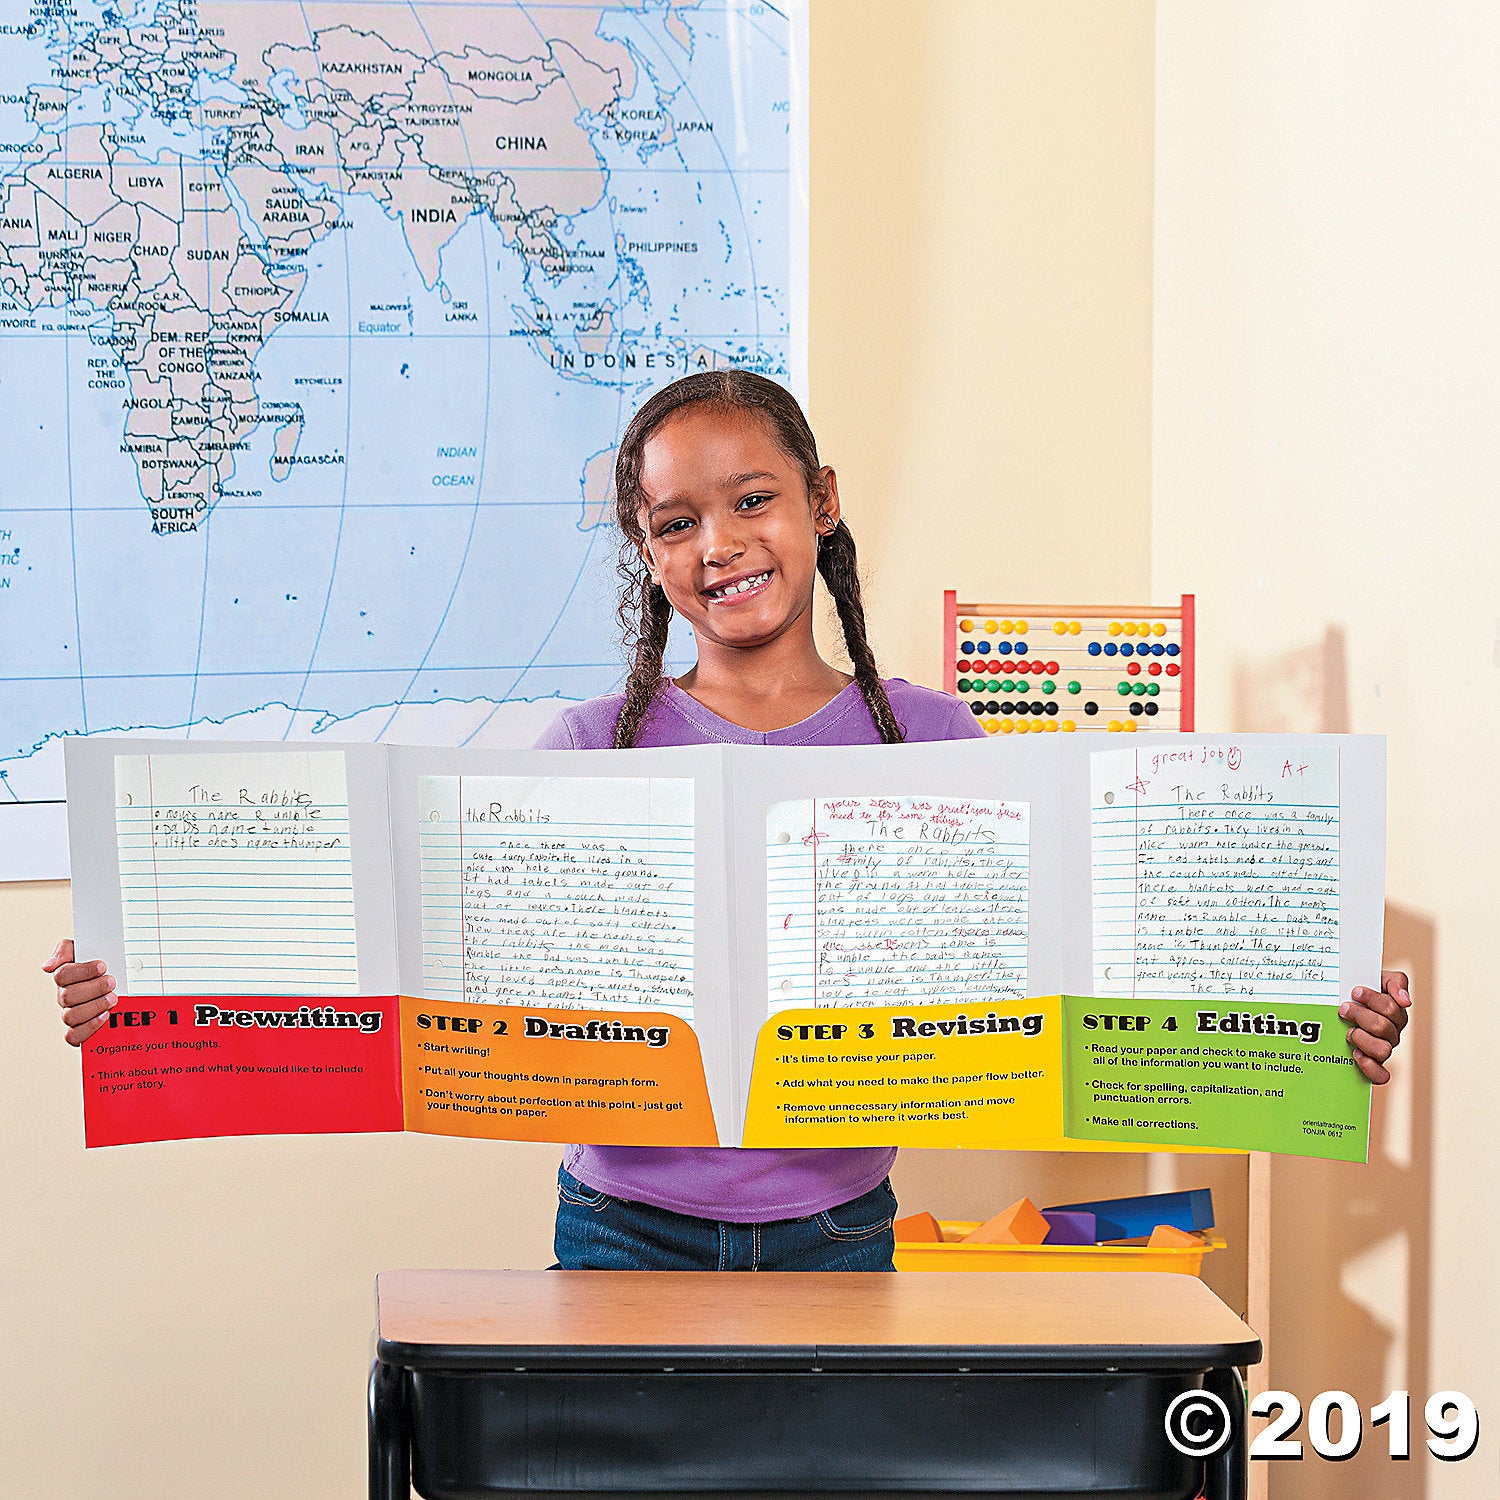 UNITED
KINGDOM
GER.
POL.
BELARUS
UKRAINE
FRANCE
ROM.
ITALY
SPAIN
GREECE
TURKEY
KAZAKHSTAN
MONGOLIA
UZB.
KYRGYZSTAN
TAJIKISTAN
TURKM.
CHINA
N. KOREA
S. KOREA
JAPAN
TUNISIA
SYRIA
IRAQ
JOR.
IRAN
AFG.
PAKISTAN
NEPAL
BHU.
BANG.
ALGERIA
LIBYA
EGYPT
QATAR
SAUDI
ARABIA
OMAN
INDIA
BURMA
LAOS
Taiwan
MALI
NIGER
CHAD
SUDAN
ERITREA
YEMEN
DJIBOUTI
THAILAND
VIETNAM
CAMBODIA
PHILIPPINES
BURKINA
FASO
BENIN
GHANA
NIGERIA
C.A.R.
ETHIOPIA
CAMEROON
TOGO
EQ. GUINEA
SOMALIA
MALDIVES
SRI
LANKA
Equator
BRUNEI
MALAYSIA
SINGAPORE
GABON
UGANDA
KENYA
DEM. REP.
OF THE
CONGO
RWANDA
BURUNDI
REP. OF
THE
CONGO
TANZANIA
SEYCHELLES
INDONESIA
PAPUA
ANGOLA
MALAWI
COMOROS
ZAMBIA
MOZAMBIQUE
NAMIBIA
ZIMBABWE
BOTSWANA
MADAGASCAR
INDIAN
OCEAN
LESOTHO
SWAZILAND
SOUTH
AFRICA
The Rabbits
• mom's name Rumble
• Dad's name tumble
• little one's name thumper
STEP 1 Prewriting
• Organize your thoughts.
• Think about who and what you would like to include
in your story.
the Rabbits
once there was a
cute furry rabbit. He lived in a
nice warm hole under the ground.
It had tabels made out of
legs and couch made
out of leaves. There blankets
were made out of soft cotten.
Now theas are the names of
the rabbits the mom was
Rumble the Dad was tumble and
the little one's name is Thumper.
They loved appels, carrots,
and green beans! Thats the
life of the rabbits
STEP 2 Drafting
• Start writing!
• Put all your thoughts down in paragraph form.
• Don't worry about perfection at this point - just get
your thoughts on paper.
your story was great! you just
need to fix some things!
The Rabbits
there once was
a family of rabbits. They
lived in a warm hole under
the ground. It had tables made
out of logs and the couch
was made out of leaves. There
blankets were made out of
soft warm cotten.
mom's name is
Rumble, the Dad's name
is tumble and the little
one's name is Thumper! They
love to eat apples carrots,
green beans. the love
STEP 3 Revising
• It's time to revise your paper.
• Add what you need to make the paper flow better.
• Remove unnecessary information and move
information to where it works best.
great job
A+
The Rabbits
There once was a family
of rabbits. They lived in a
nice warm hole under the ground.
It had tabels made of logs and
the couch was made out of leaves.
There blankets were made out
of soft warm cotten. The mom's
name is Rumble the Dad's name
is tumble and the little one's
name is Thumper! They love to
eat apples, carrots, and
green beans. They love there life!
The End
STEP 4 Editing
• Read your paper and check to make sure it contains
all of the information you want to include.
• Check for spelling, capitalization, and
punctuation errors.
• Make all corrections.
orientaltrading.com
TONJIA 0612
© 2019